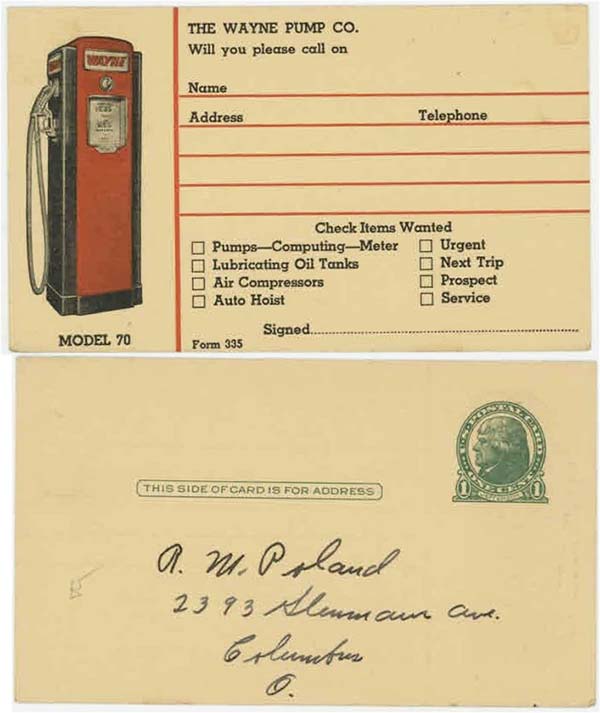 WAYNE
THE WAYNE PUMP CO.
Will you please call on
Name
Address Telephone
Check Items Wanted
☐ Pumps—Computing—Meter ☐ Urgent
☐ Lubricating Oil Tanks ☐ Next Trip
☐ Air Compressors ☐ Prospect
☐ Auto Hoist ☐ Service
Signed
MODEL 70 Form 335
U.S. POSTAL CARD
THIS SIDE OF CARD IS FOR ADDRESS
1 ONE CENT 1
R. M. Poland
2393 ave.
Columbus
O.